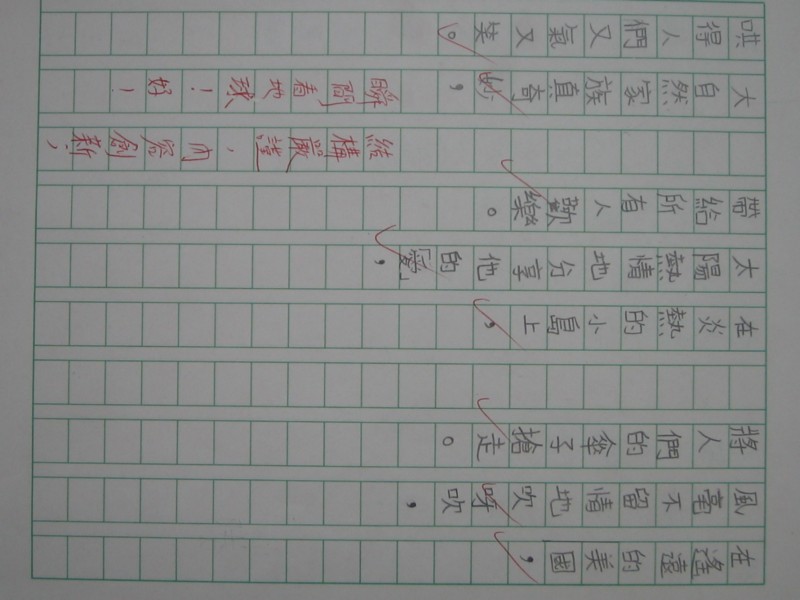 在遙遠的美國，
風毫不留情地吹呀吹，
將人們的傘子搶走。
在炎熱的小島上，
太陽熱情地分享他的「愛」，
帶給所有人歡樂。
大自然家族真奇妙，
哄得人們又氣又笑。
結構嚴謹，內容創新，
瞬間看地球！好！